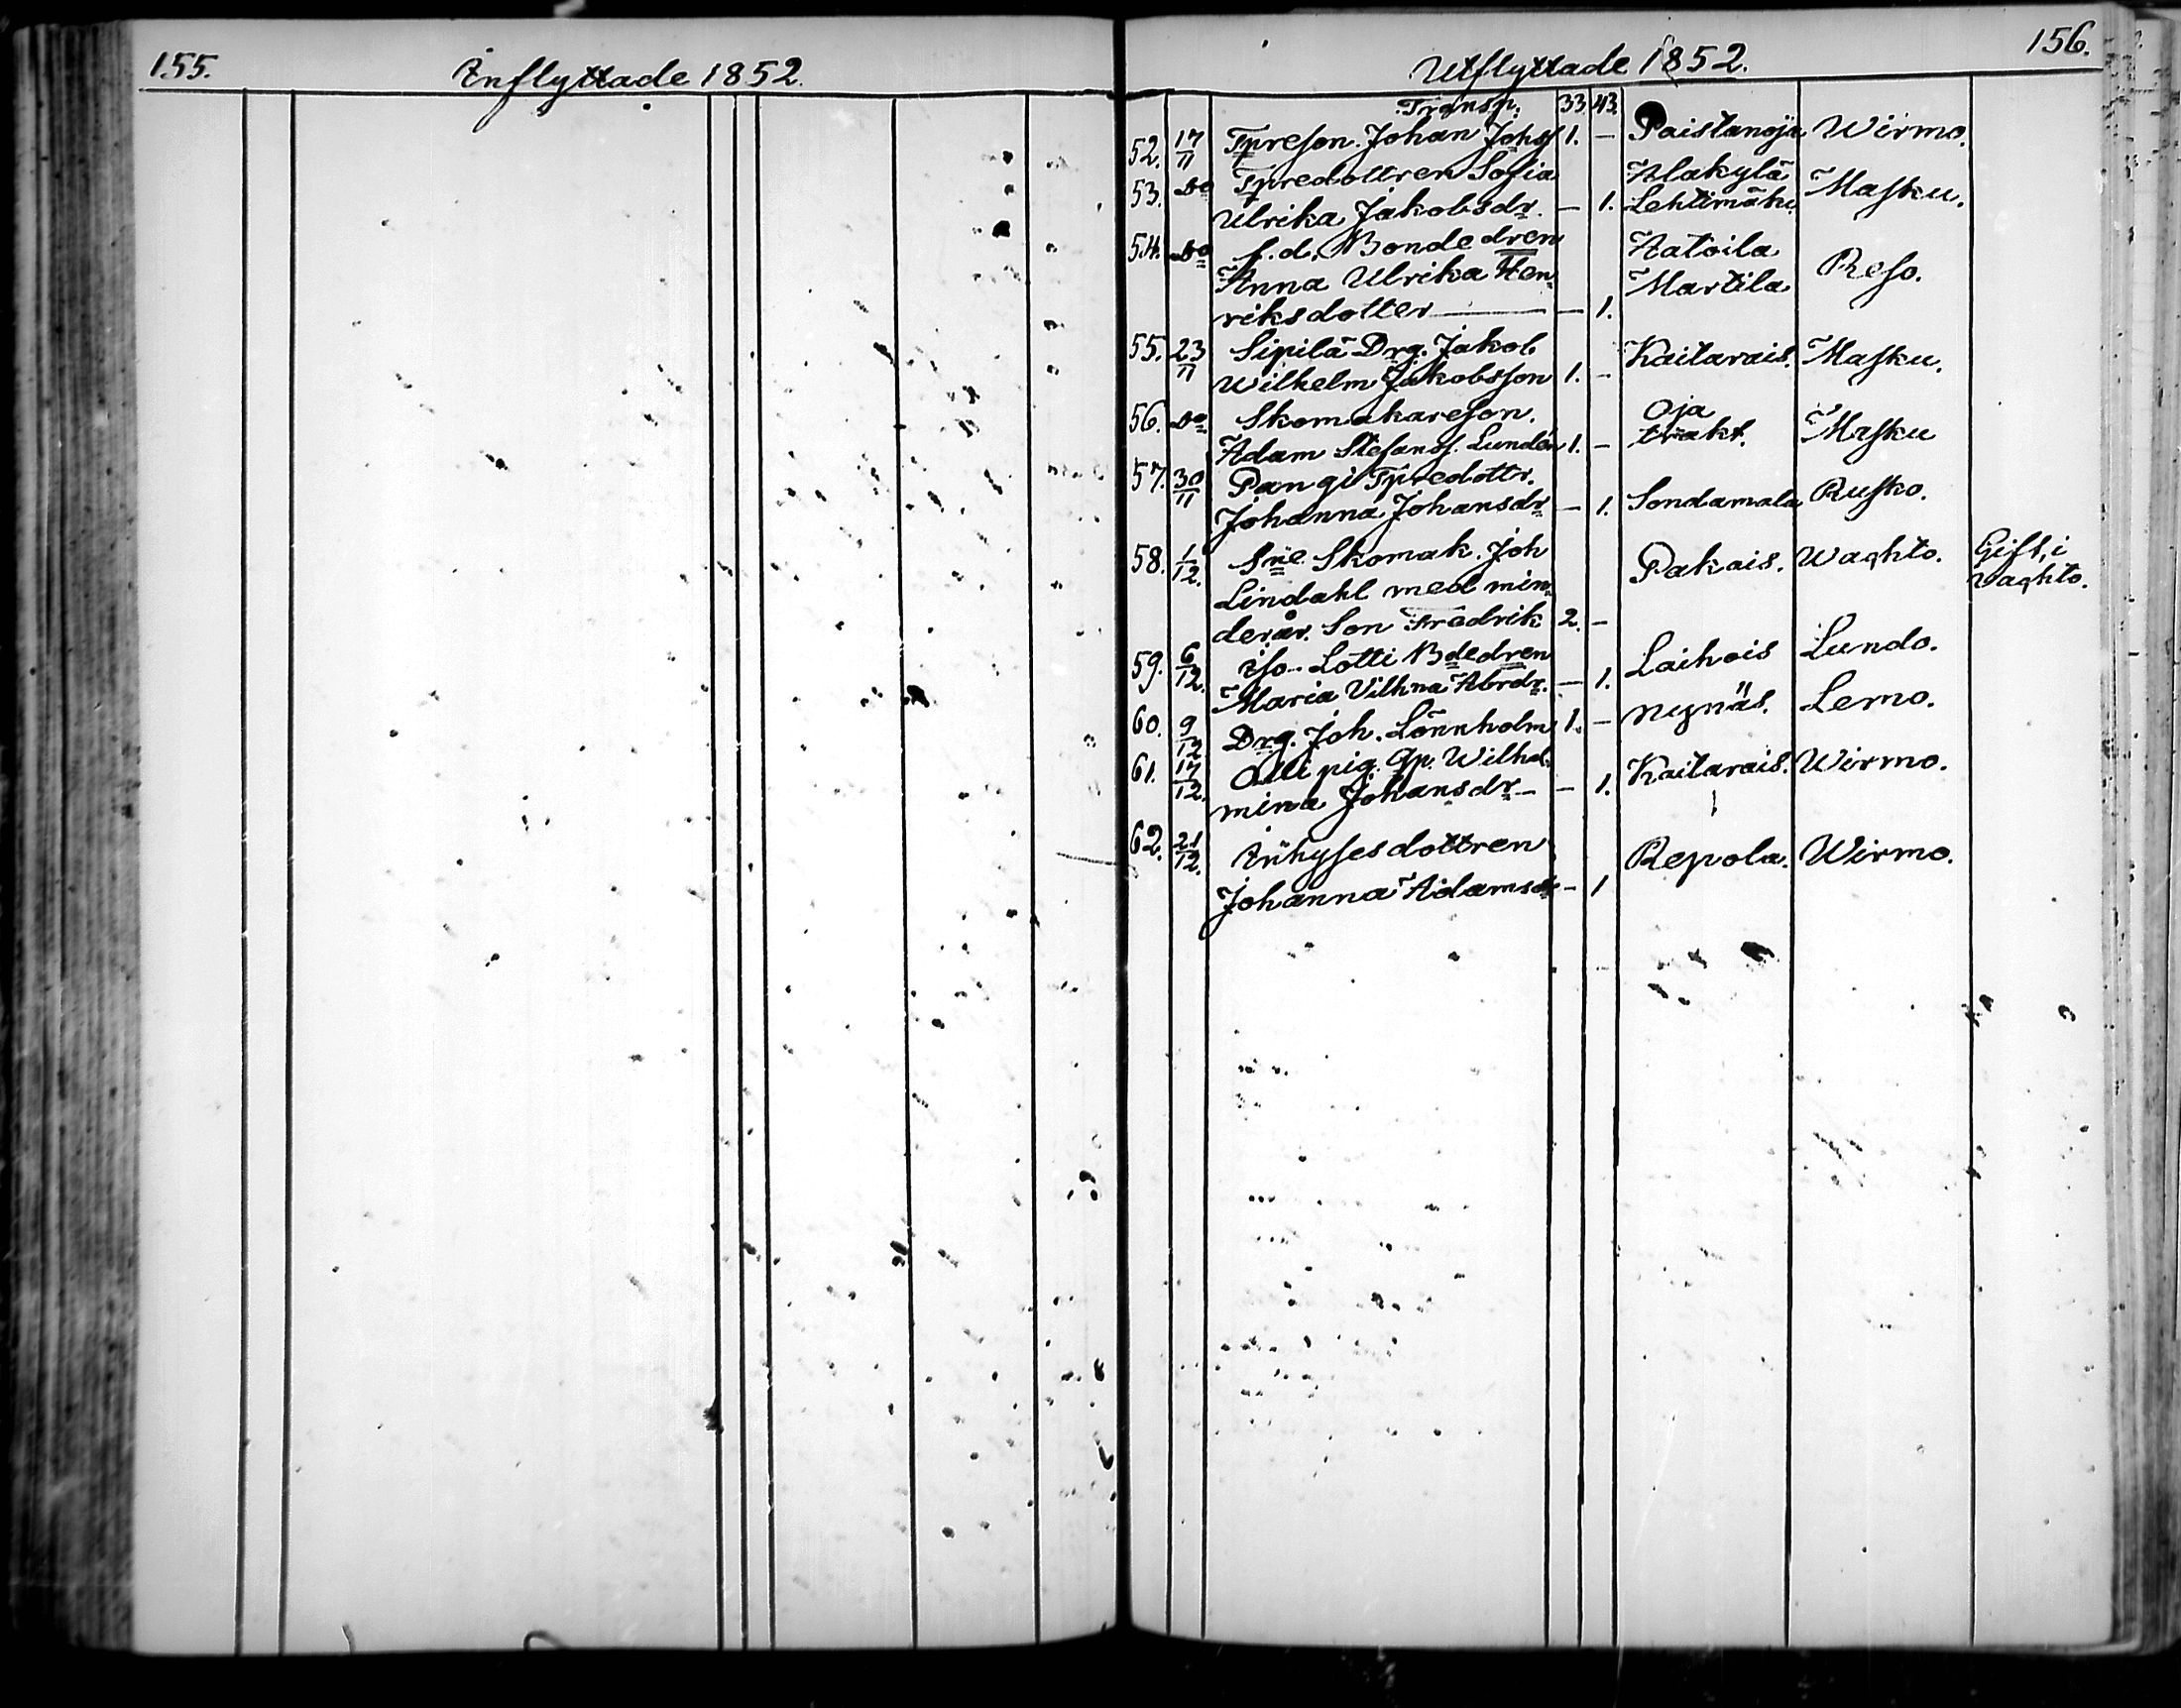 155.
Inflyttade 1852.
156.
Utflyttade 1852.
Transp. 33. 43.
52. 17/11 Tpreson. Johan Johss 1. — Paistanoja Wirmo.
53. Do Tpredottren Sofia Alakylä
Ulrika Jakobsdr. — 1. Lehtimäki Masku.
54. Do f.d. Bondedren Hatoila
Anna Ulrika Hen Martila Reso.
riksdotter — — 1.
55. 23/11 Sipilä Drg. Jakob Kaitarais. Masku.
Wilhelm Jakobsson 1. —
56. Do Skomakareson. Oja
Adam Stefanss. Lundén 1. — trakt. Masku
57. 30/11 Pangi Tpredottr.
Johanna Johansdr — 1. Sondamala Rusko.
58. 1/12. Sne. Skomak. Joh Pakais. Waghto. Gift, i
Lindahl med min waghto.
derår. Son Fredrik 2. —
59. 6/12. Iso-Lotti Bdedren Laihois Lundo.
Maria Vilhna Abrdr. — 1.
60. 9/12 Drg. Joh. Lönnholm 1. — Nynäs. Lemo.
61. 17/12. Alli pig. Gp. Wilhel Kaitarais. Wirmo.
mina Johansdr — — 1.
62. 21/12. Inhysesdottren Repola. Wirmo.
Johanna Adamsdr — 1